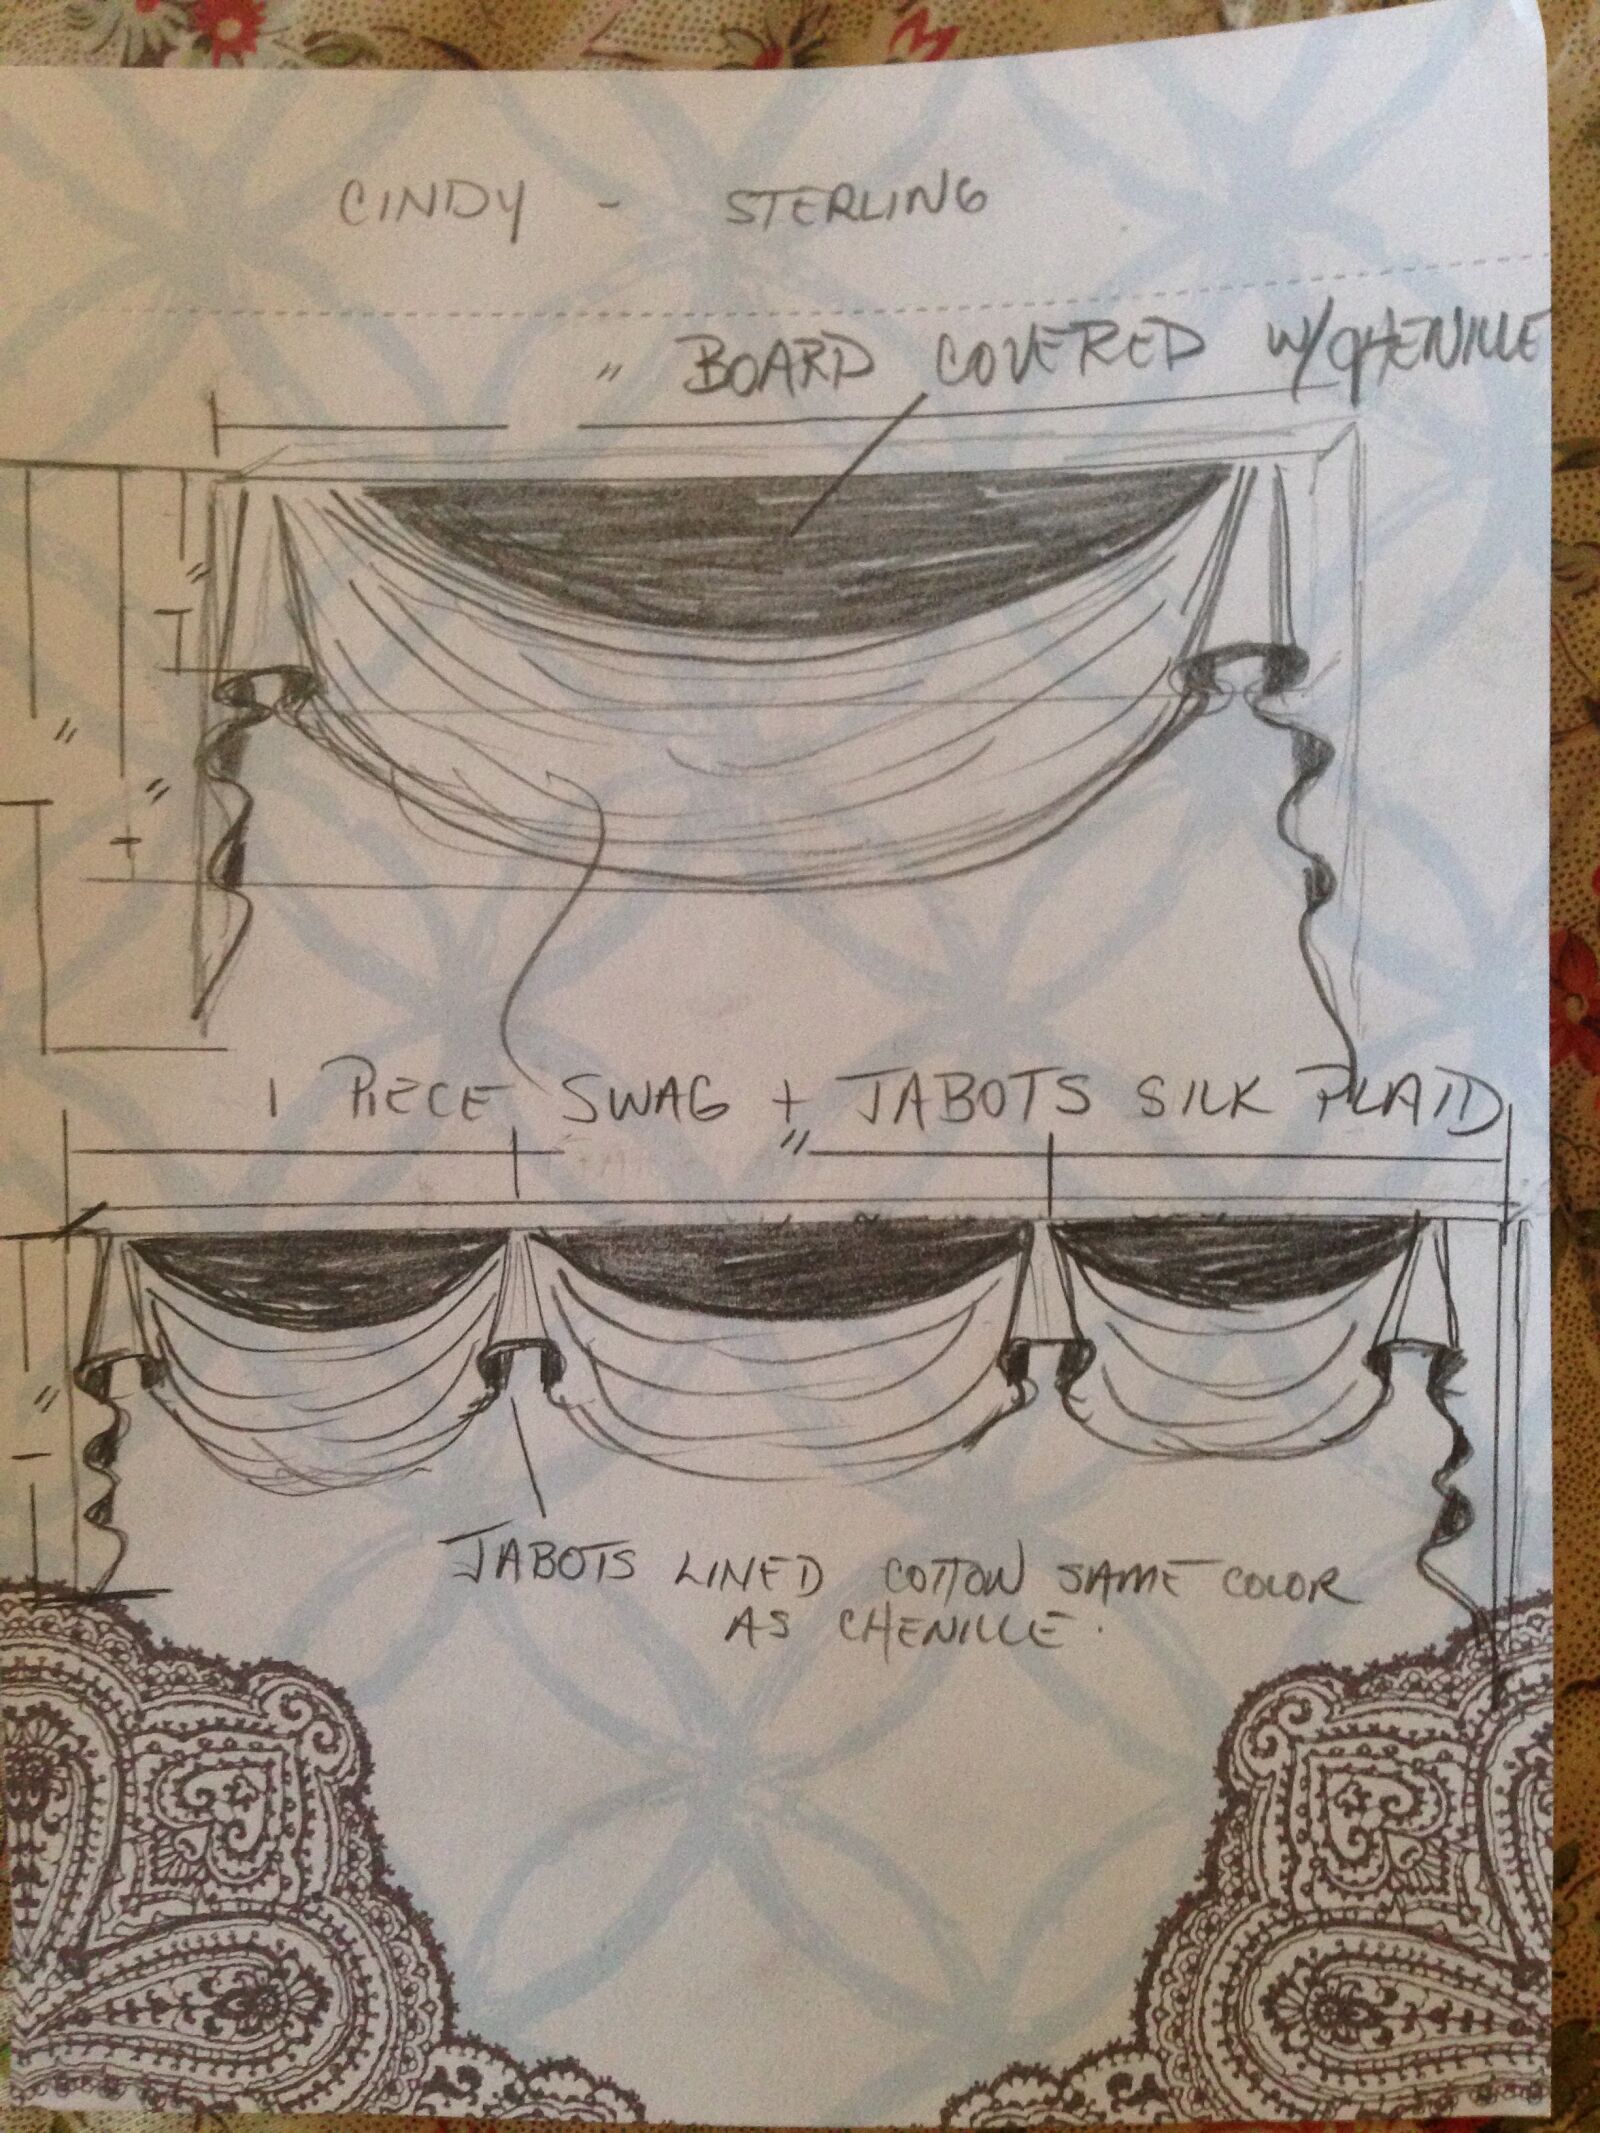 CINDY - STERLING
" BOARD COVERED W/CHENILLE
"
"
1 PIECE SWAG + JABOTS SILK PLAID
"
"
JABOTS LINED COTTON SAME COLOR
AS CHENILLE.